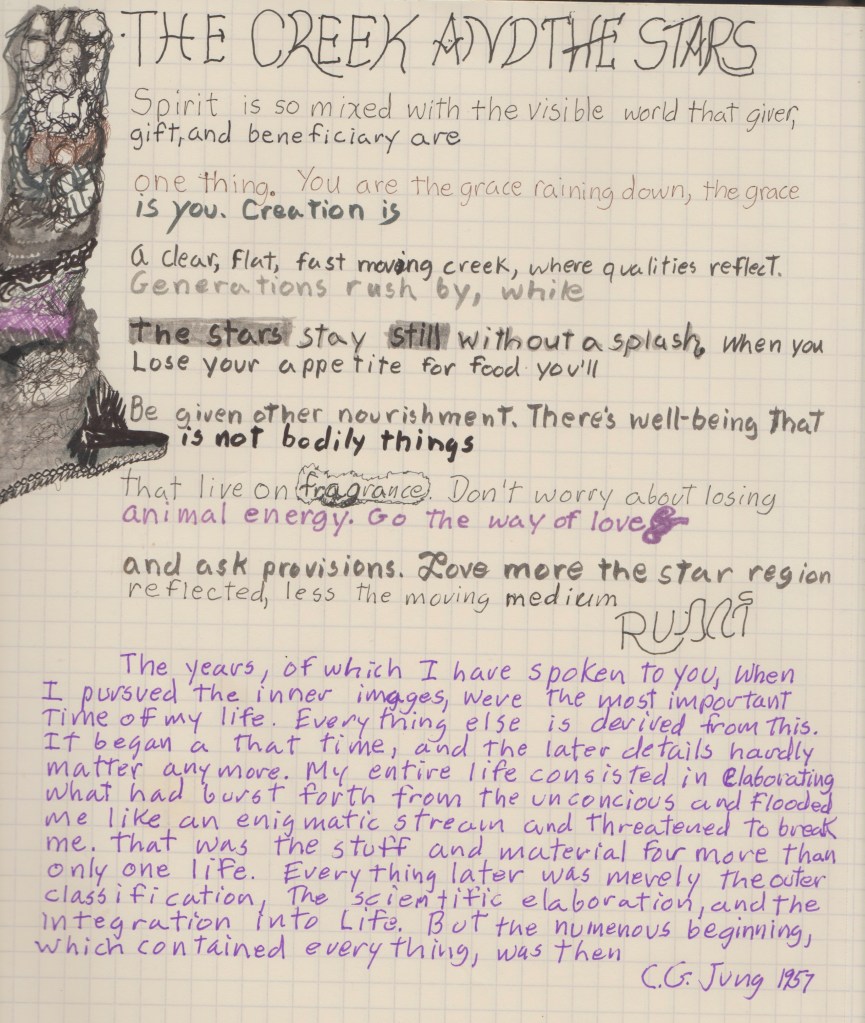 THE CREEK AND THE STARS
Spirit is so mixed with the visible world that giver,
gift, and beneficiary are
one thing. You are the grace raining down, the grace
is you. Creation is
a clear, flat, fast moving creek, where qualities reflect.
Generations rush by, while
the stars stay still without a splash, when you
Lose your appetite for food you'll
Be given other nourishment. There's well-being that
is not bodily things
that live on fragrance. Don't worry about losing
animal energy. Go the way of love
and ask provisions. Love more the star region
reflected, less the moving medium
RUMi
The years, of which I have spoken to you, when
I pursued the inner images, were the most important
Time of my life. Everything else is derived from this.
It began a that time, and the later details hardly
matter anymore. My entire life consisted in elaborating
what had burst forth from the unconcious and flooded
me like an enigmatic stream and threatened to break
me. that was the stuff and material for more than
only one life. Everything later was merely the outer
classification, The scientific elaboration, and the
integration into Life. But the numenous beginning,
which contained everything, was then
C.G. Jung 1957